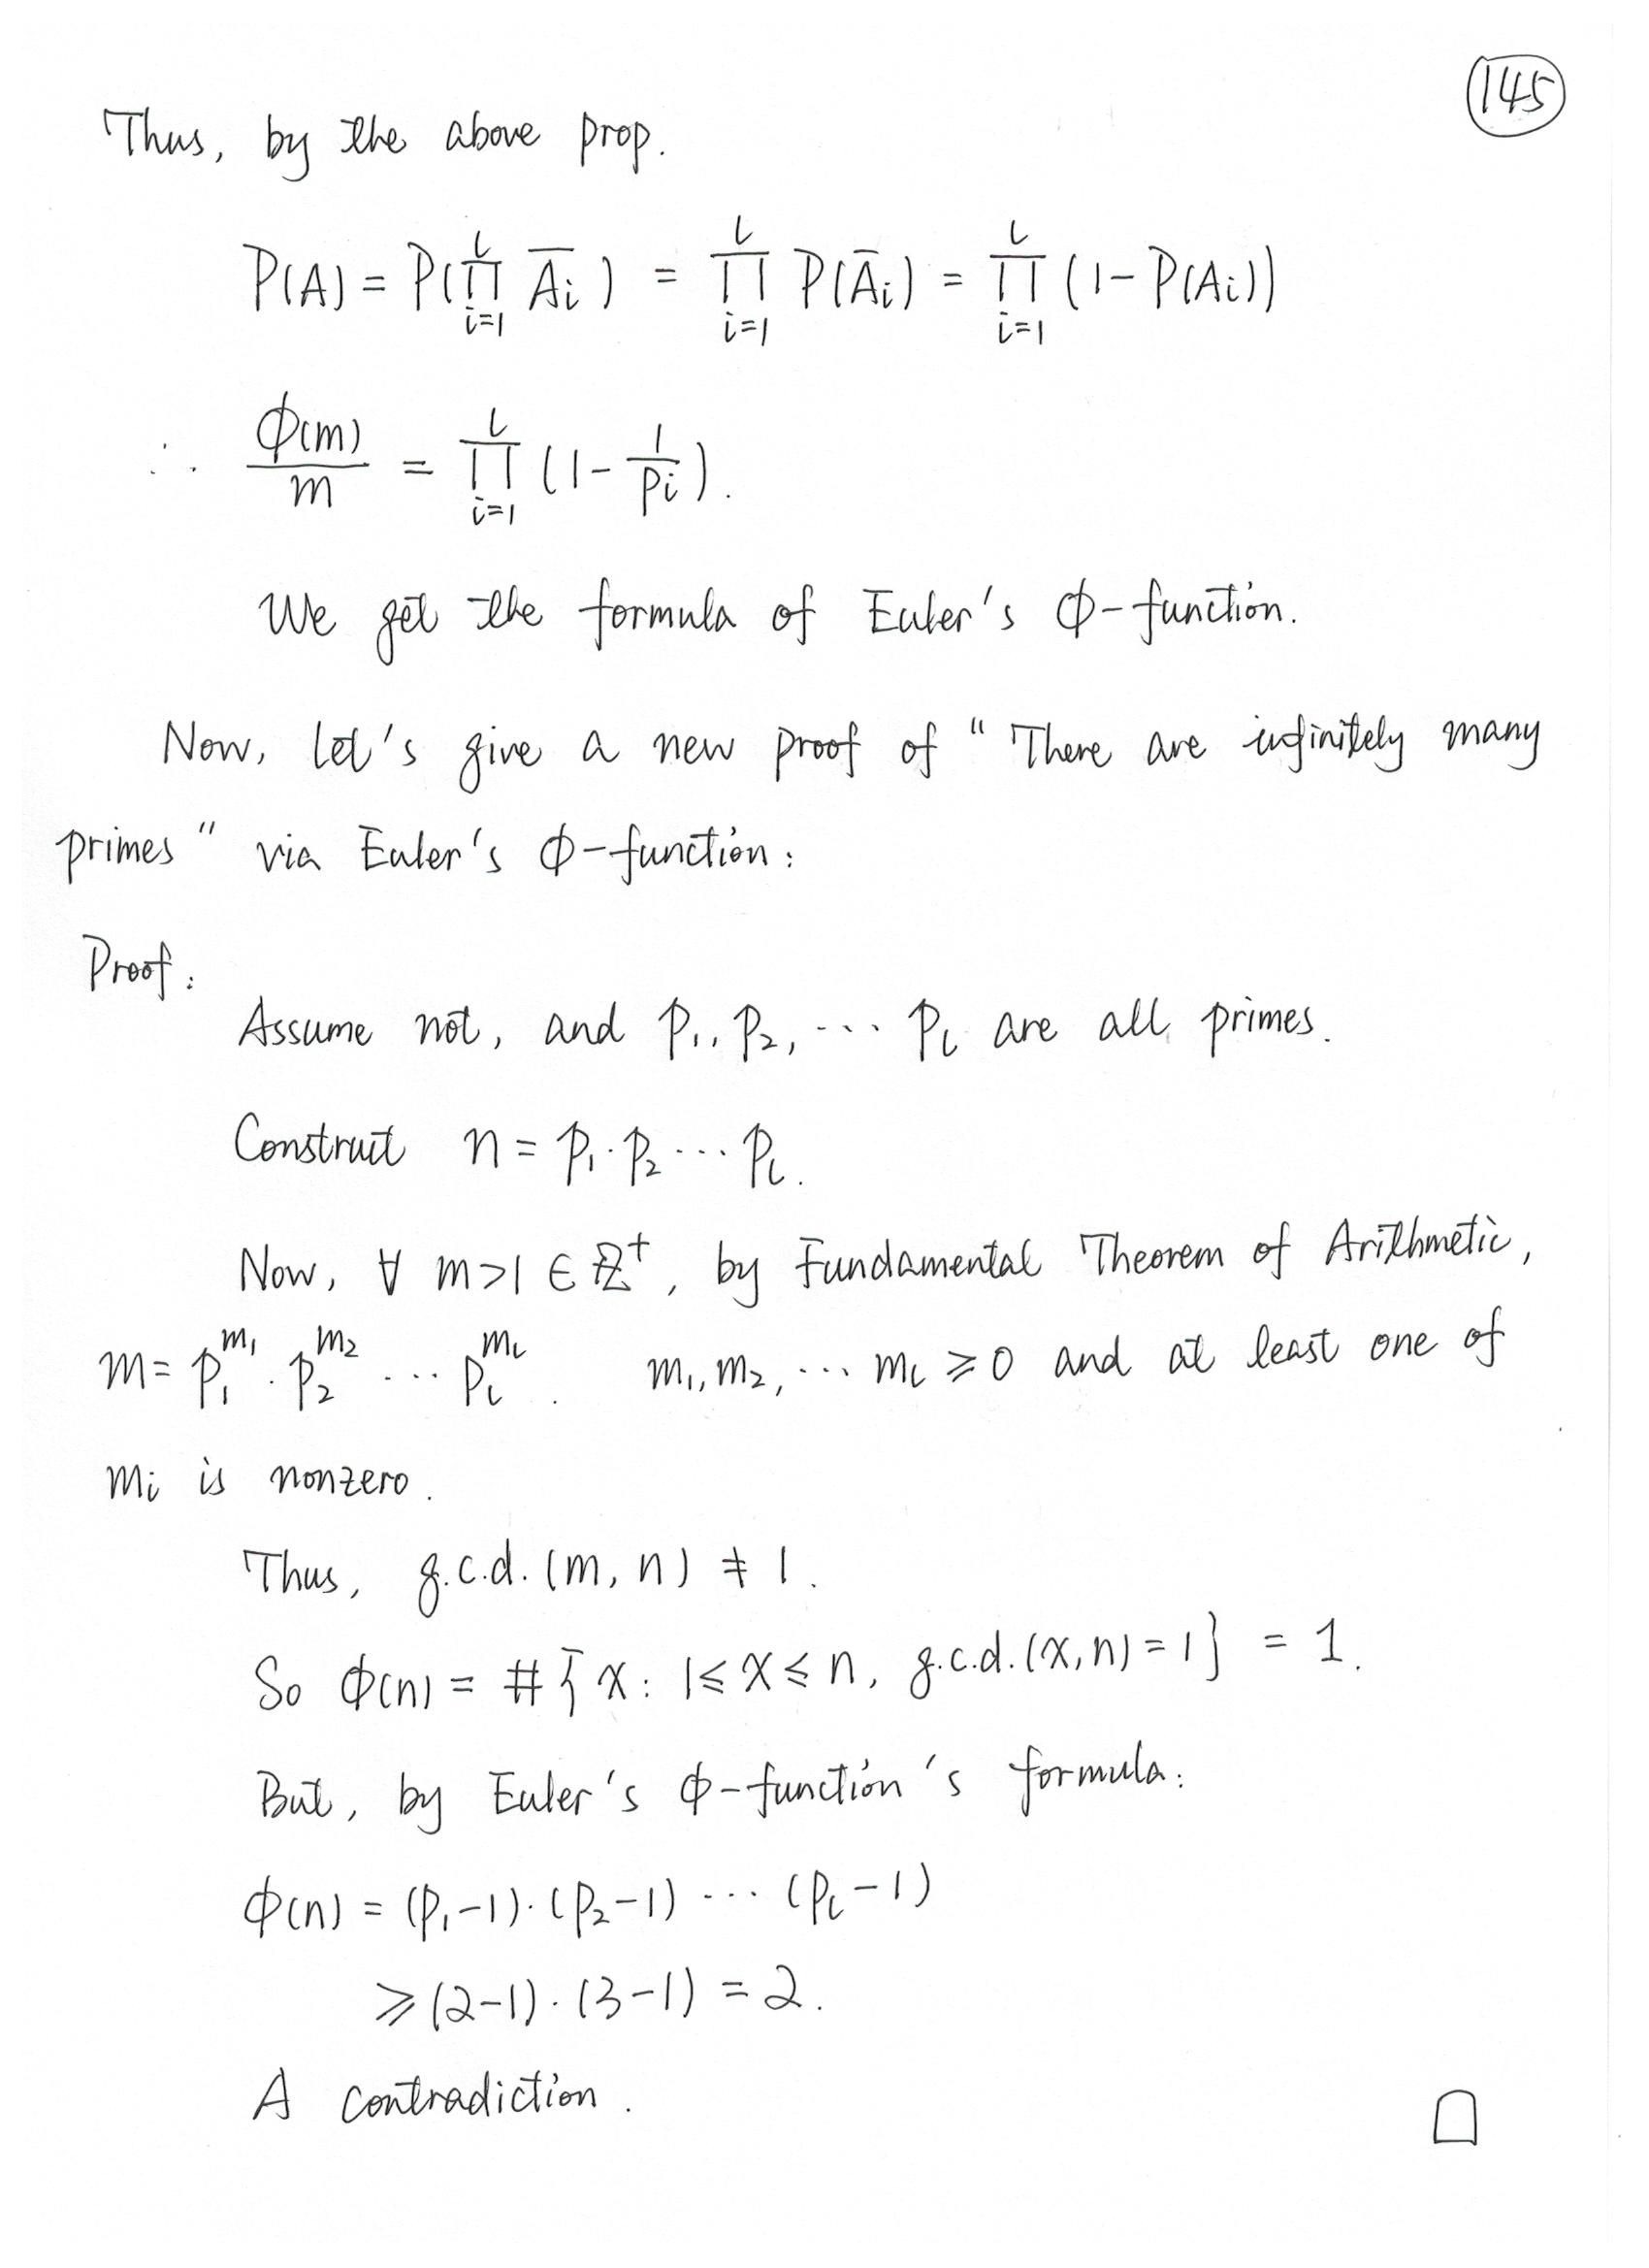 145
Thus, by the above prop.
P(A) = P(∏_{i=1}^{l} Āi) = ∏_{i=1}^{l} P(Āi) = ∏_{i=1}^{l} (1-P(Ai))
∴ ϕ(m)/m = ∏_{i=1}^{l} (1-1/pi).
We get the formula of Euler's ϕ-function.
Now, let's give a new proof of "There are infinitely many
primes" via Euler's ϕ-function:
Proof:
Assume not, and p₁, p₂, ⋯ pₗ are all primes.
Construct n = p₁·p₂⋯pₗ.
Now, ∀ m>1 ∈ ℤ⁺, by Fundamental Theorem of Arithmetic,
m = p₁^{m₁}·p₂^{m₂} ⋯ pₗ^{mₗ}. m₁, m₂, ⋯ mₗ ⩾ 0 and at least one of
mi is nonzero.
Thus, g.c.d.(m, n) ≠ 1.
So ϕ(n) = #{x: 1⩽x⩽n, g.c.d.(x,n)=1} = 1.
But, by Euler's ϕ-function's formula:
ϕ(n) = (p₁-1)·(p₂-1) ⋯ (pₗ-1)
⩾ (2-1)·(3-1) = 2.
A contradiction. □